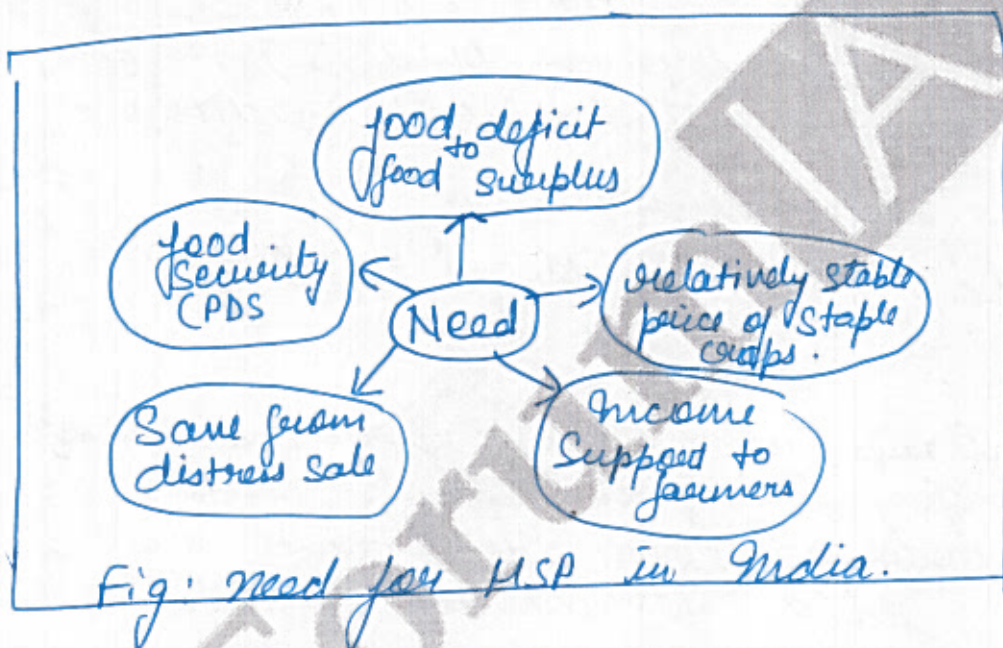 food deficit
to
food surplus
food
security
(PDS
Need
relatively stable
price of staple
crops.
Save from
distress sale
Income
Support to
farmers
Fig: need for MSP in India.
ForumIA